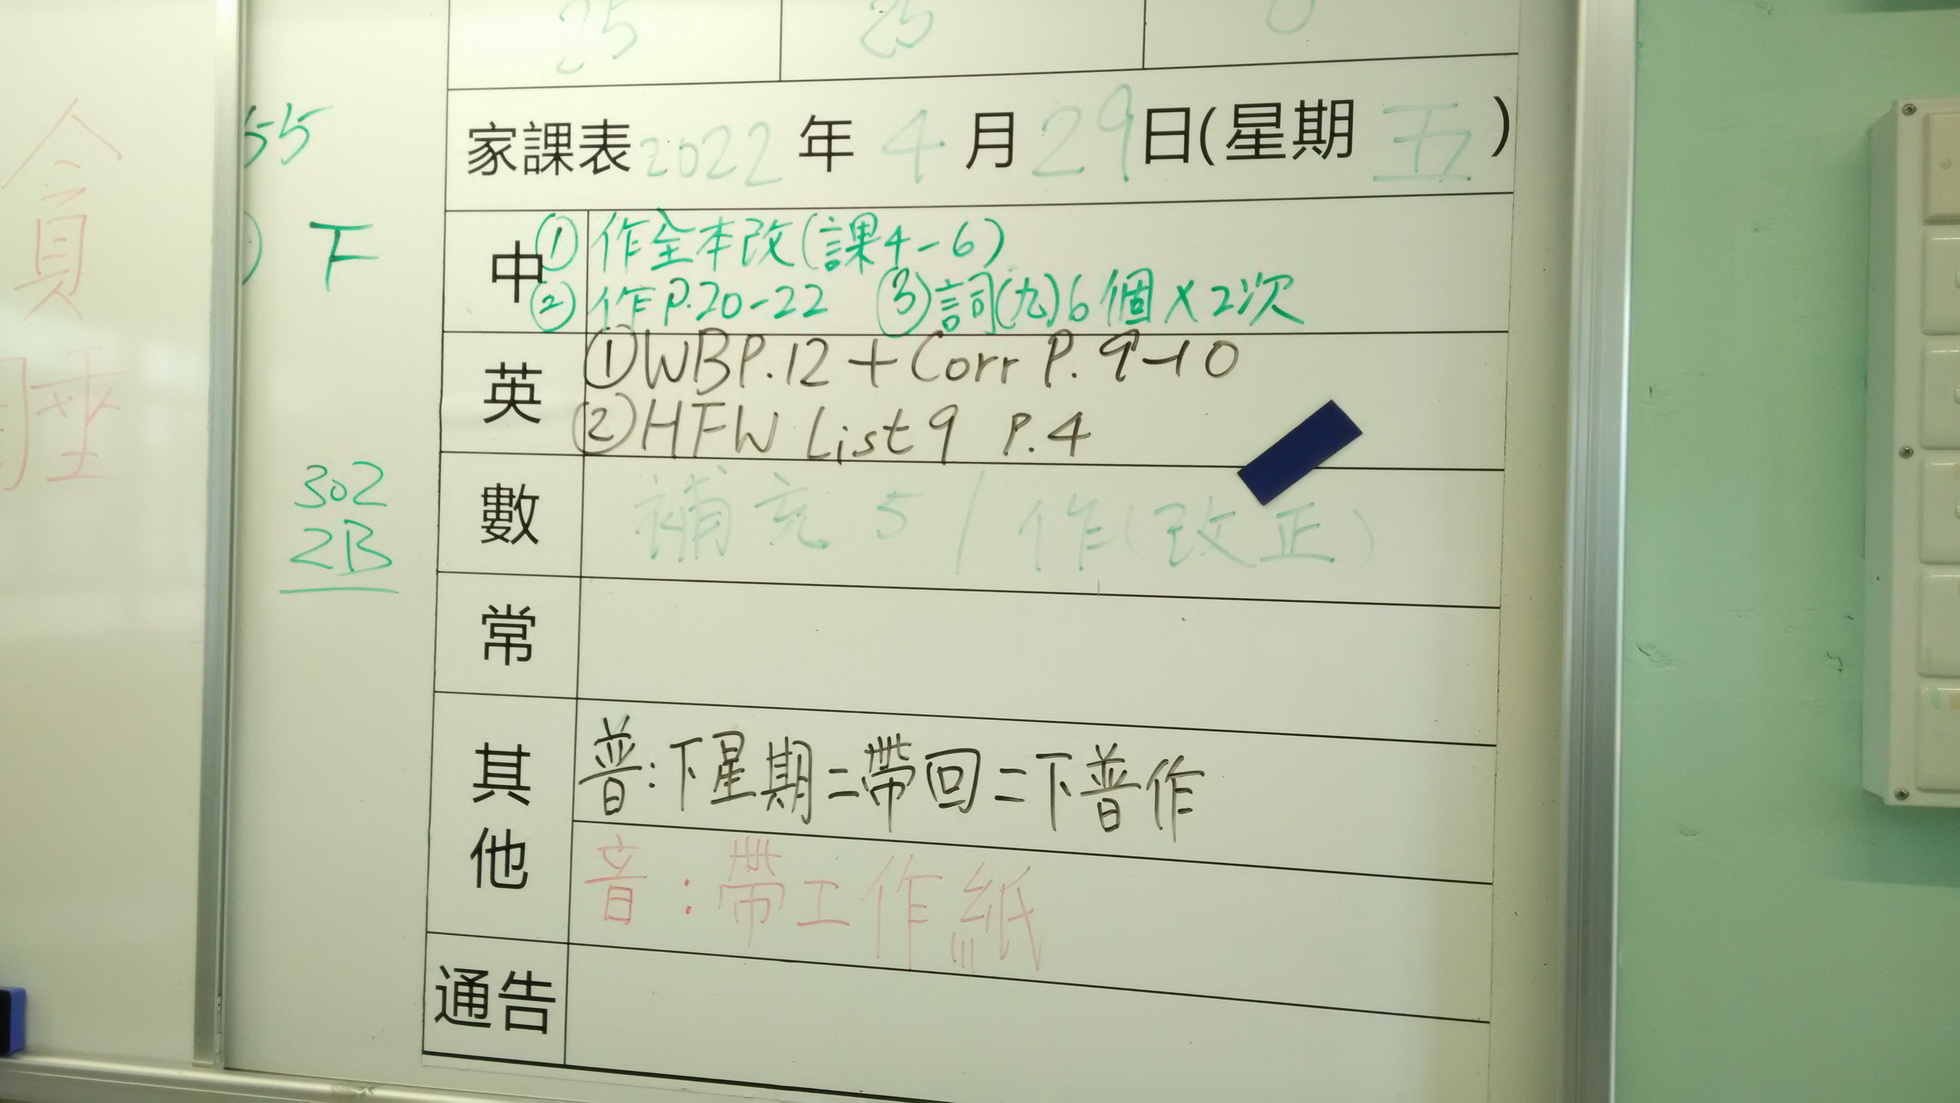 25 25 0
家課表 2022 年 4 月 29 日(星期 五 )
中 ① 作全本改(課4-6)
② 作P.20-22 ③詞(九)6個×2次
英 ①WBP.12 + Corr P. 9-10
②HFW List 9 P.4
數 補充 5 / 作(改正)
常
其他 普:下星期二帶回二下普作
音:帶工作紙
通告
55
下
302
2B